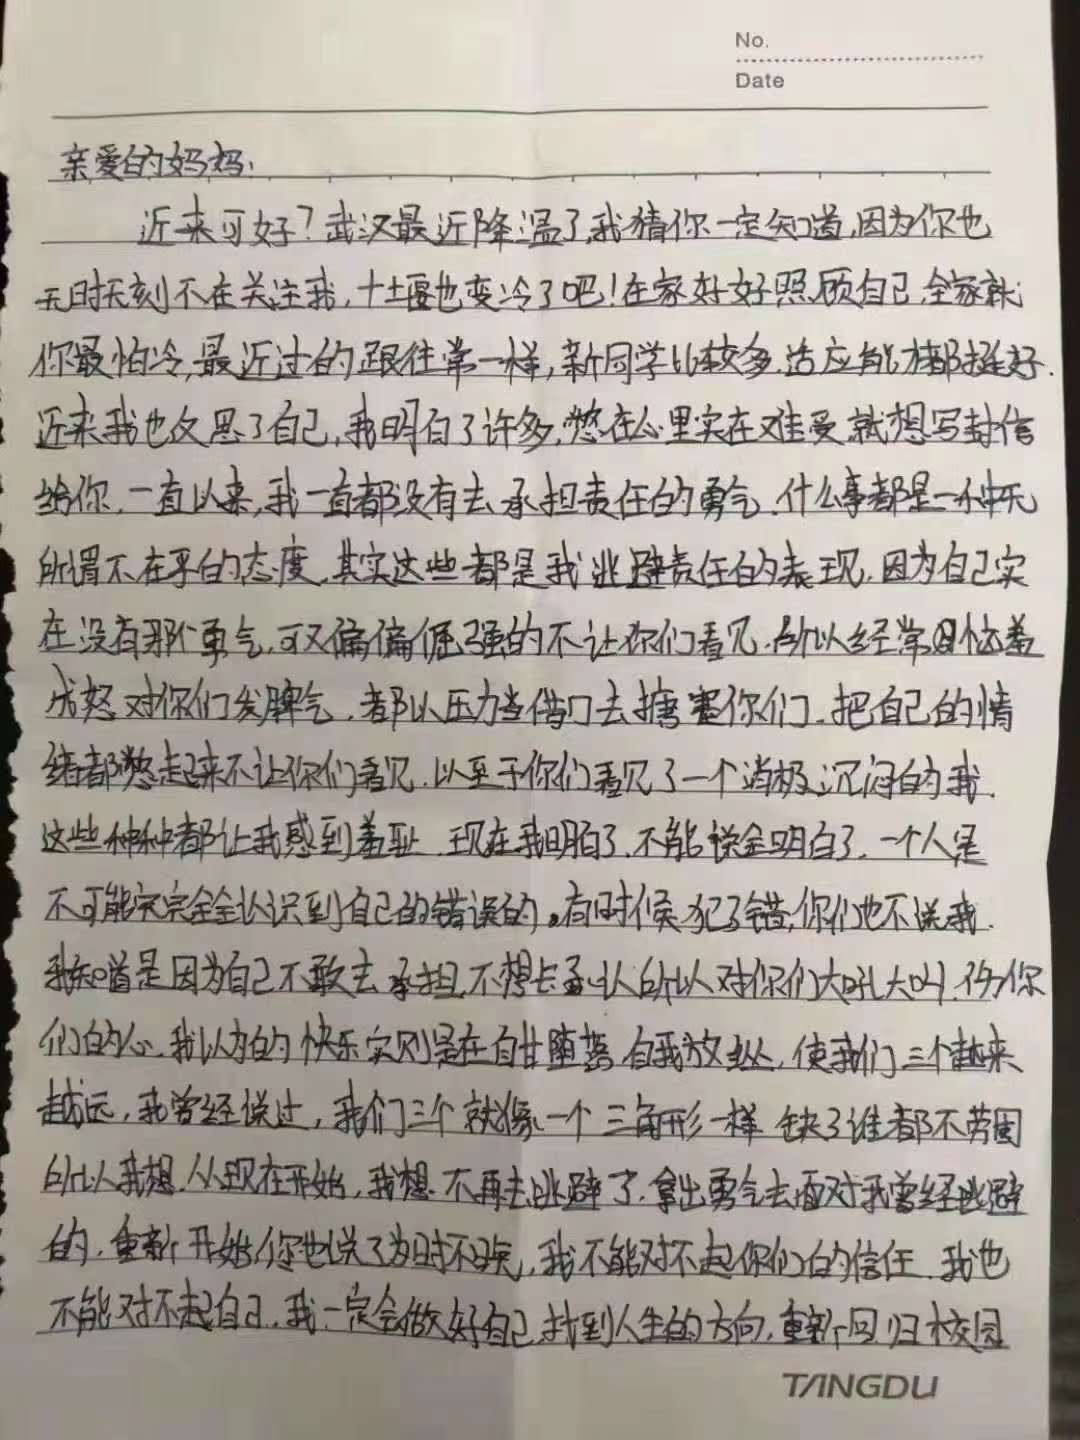 No.
Date
亲爱的妈妈:
近来可好?武汉最近降温了,我猜你一定知道,因为你也
无时无刻不在关注我,十堰也变冷了吧!在家好好照顾自己,全家就
你最怕冷,最近过的跟往常一样,新同学比较多,适应能力都挺好.
近来我也反思了自己,我明白了许多,憋在心里实在难受就想写封信
给你,一直以来,我一直都没有去承担责任的勇气.什么事都是一种无
所谓不在乎的态度,其实这些都是我逃避责任的表现,因为自己实
在没有那个勇气,可又偏偏倔强的不让你们看见.所以经常恼羞
成怒对你们发脾气,都以压力当借口去搪塞你们,把自己的情
绪都憋起来不让你们看见,以至于你们看见了一个消极沉闷的我.
这些种种都让我感到羞耻.现在我明白了,不能说全明白了,一个人是
不可能完完全全认识到自己的错误的。有时候犯了错,你们也不说我.
我知道是因为自己不敢去承担,不想去承认所以对你们大吼大叫,伤你
们的心.我认为的快乐实则是在自甘堕落,自我放纵,使我们三个越来
越远,我曾经说过,我们三个就像一个三角形一样 缺了谁都不牢固
所以我想.从现在开始,我想不再去逃避了,拿出勇气去面对我曾经逃避
的,重新开始,你也说了为时不晚,我不能对不起你们的信任.我也
不能对不起自己.我一定会做好自己,找到人生的方向,重新回归校园
TANGDU